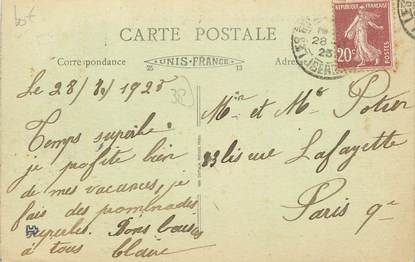 CARTE POSTALE
Correspondance
UNIS-FRANCE
RÉPUBLIQUE FRANÇAISE
20c
POSTES
28
Le 28/ /1925
Temps superbe
je profite bien
de mes vacances, je
fais des promenades
superbes. Bons baisers
à tous Claire
Mr et Me Potier
rue Lafayette
Paris 9e